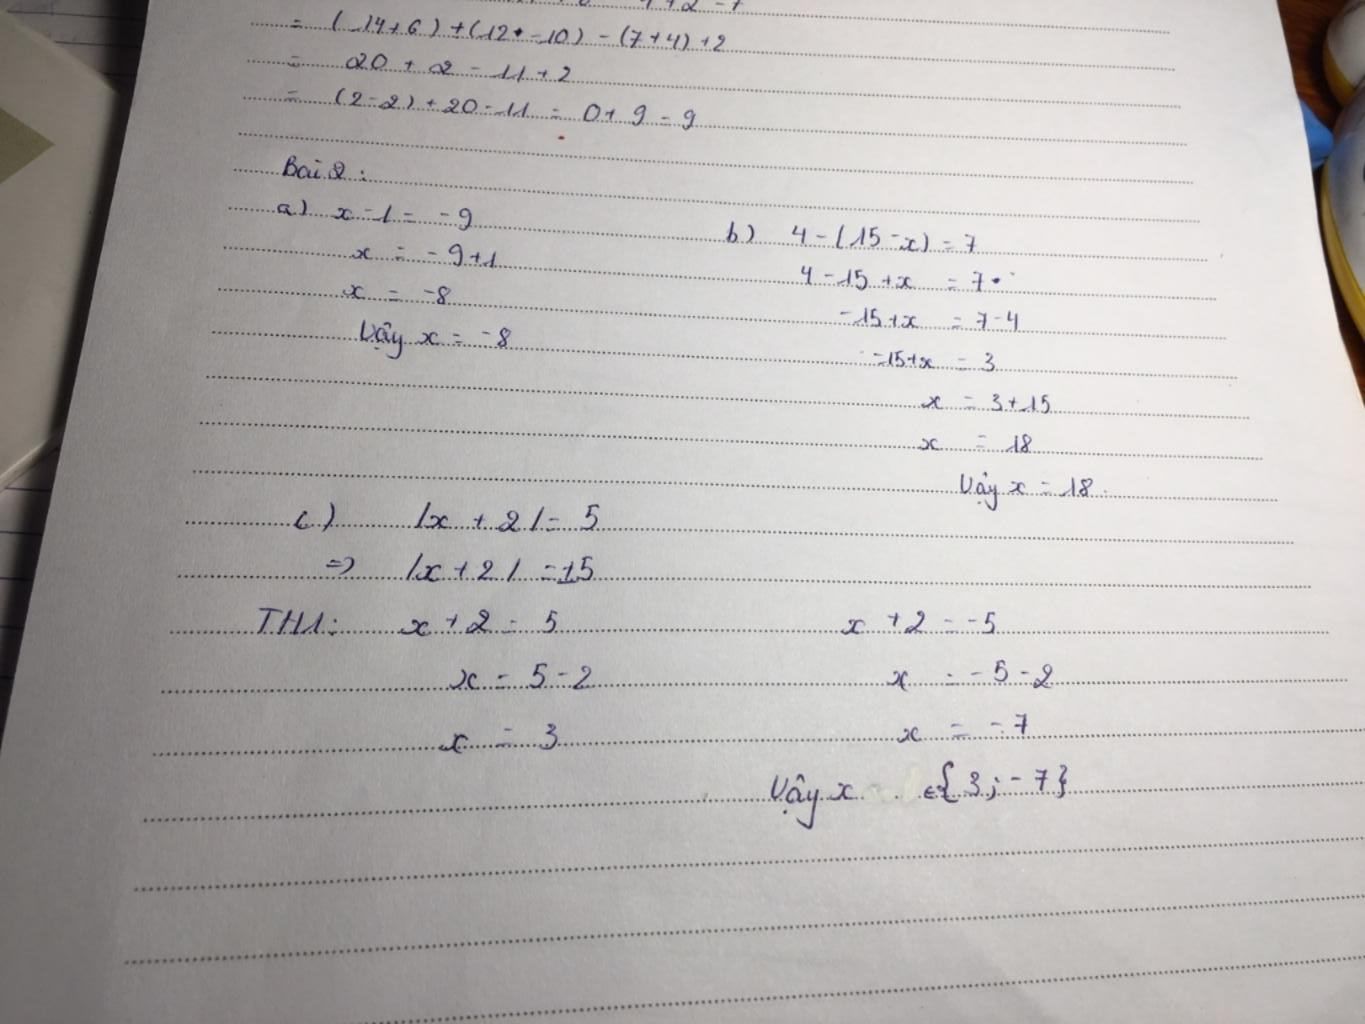 = (14+6) + (12 - 10) - (7+4) + 2
= 20 + 2 - 11 + 2
= (2-2) + 20 - 11 = 0 + 9 = 9
Bài 2:
a) x - 1 = -9
x = -9+1
x = -8
Vậy x = -8
b) 4 - (15 - x) = 7
4 - 15 + x = 7
-15+x = 7-4
-15+x = 3
x = 3+15
x = 18
Vậy x = 18.
c) |x + 2| = 5
=> |x + 2| = ±5
TH1: x + 2 = 5
x = 5 - 2
x = 3
x + 2 = -5
x = -5 - 2
x = -7
Vậy x ∈ {3; -7}